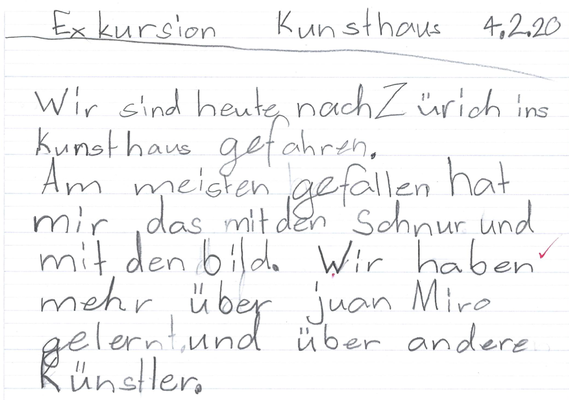 Exkursion Kunsthaus 4.2.20
Wir sind heute nach Zürich ins
Kunsthaus gefahren.
Am meisten gefallen hat
mir das mit den Schnur und
mit den bild. Wir haben
mehr über juan Miro
gelernt und über andere
Künstler.